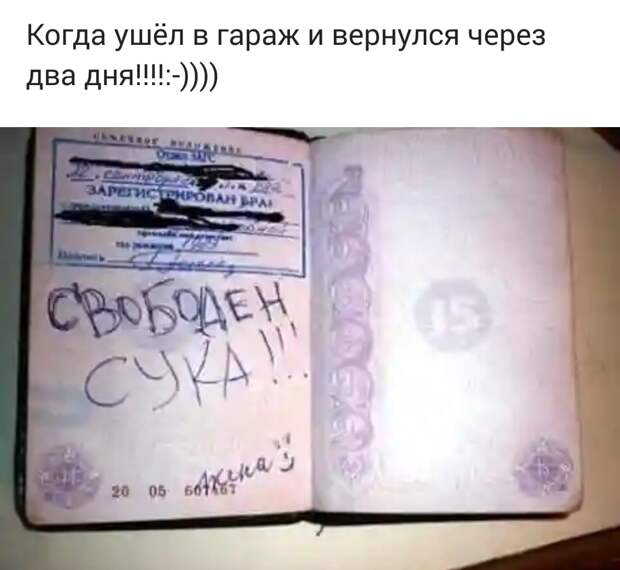 Когда ушёл в гараж и вернулся через
два дня!!!!:-))))
СЕМЕЙНОЕ ПОЛОЖЕНИЕ
Отдел ЗАГС
ЗАРЕГИСТРИРОВАН БРАК
СВОБОДЕН
СУКА!!!
Жена
20 05
15